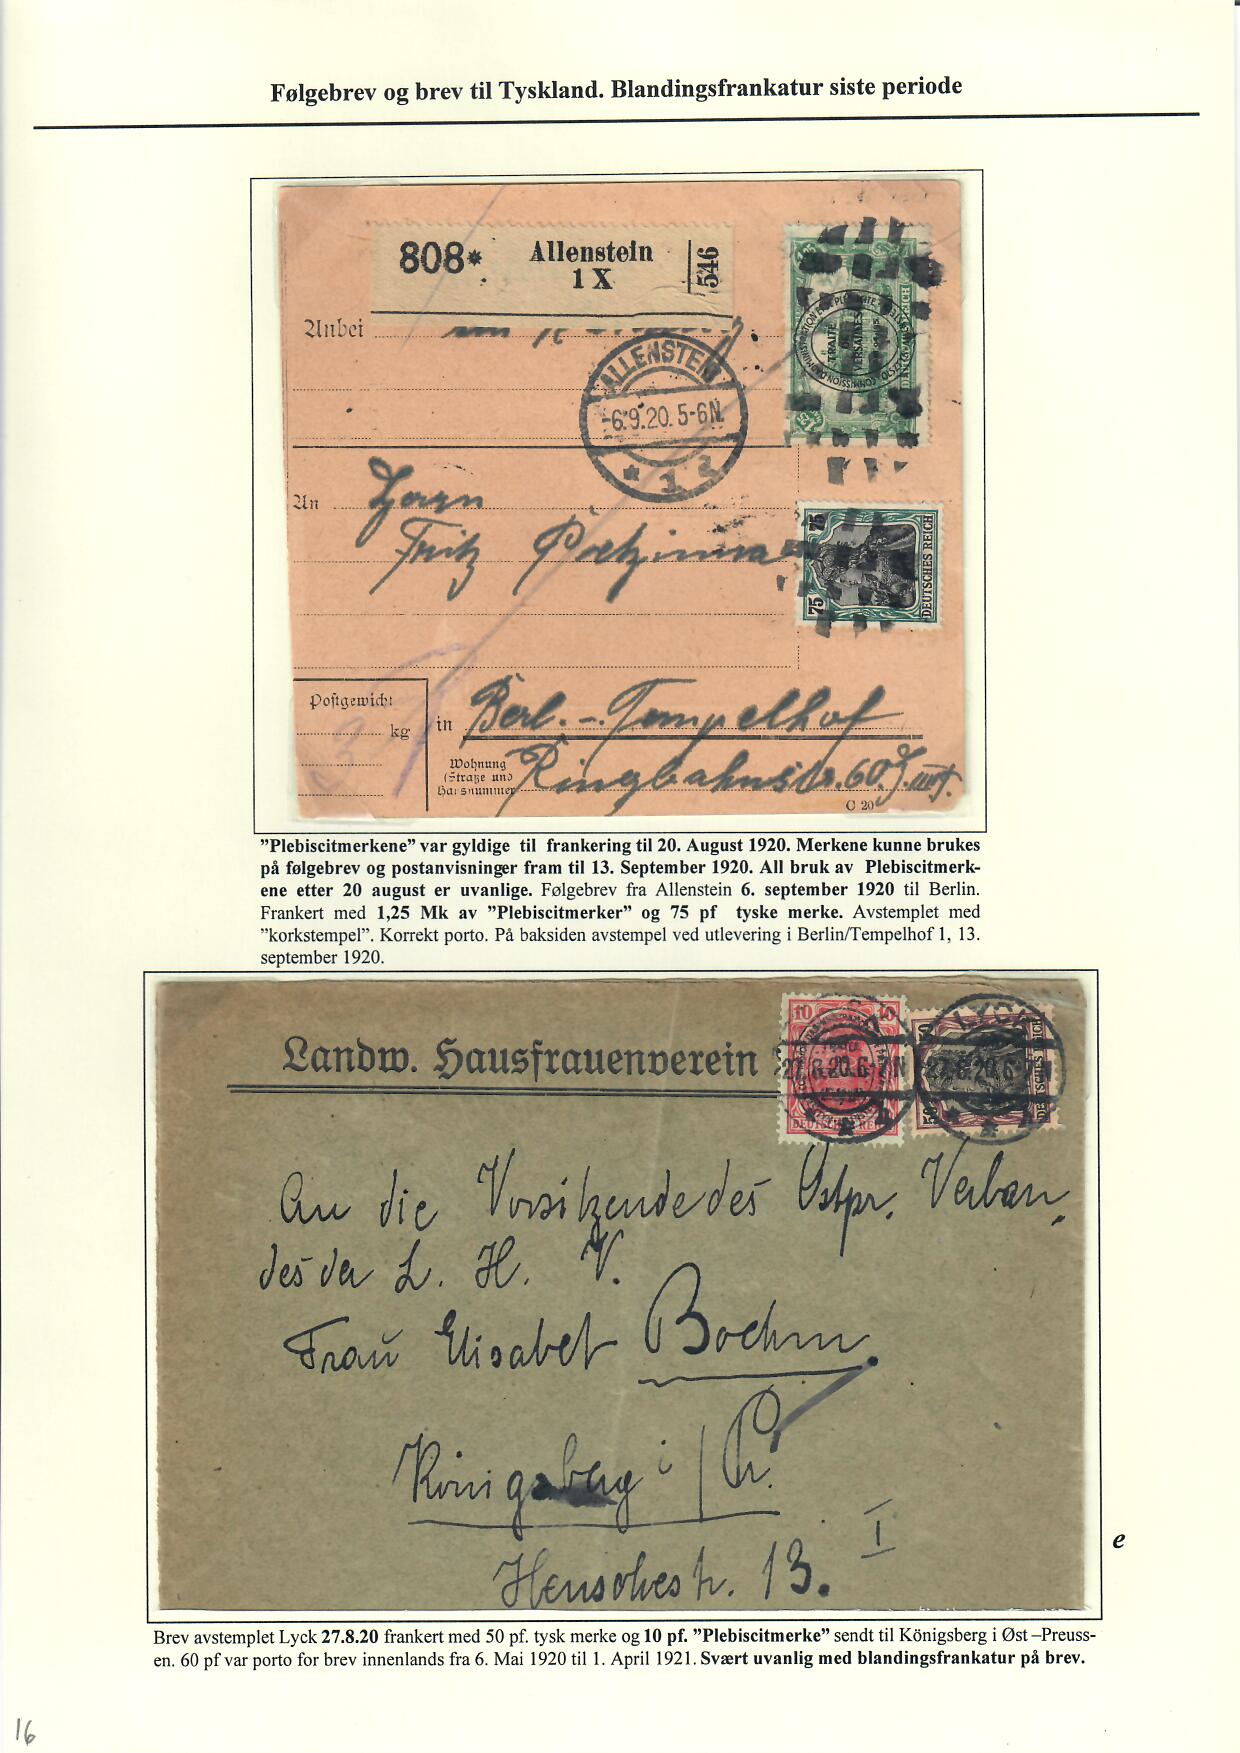 Følgebrev og brev til Tyskland. Blandingsfrankatur siste periode
808*
Allenstein
1 X
546
Anbei
ALLENSTEIN
-6.9.20. 5-6N.
* 1 2
TRAITÉ
DE
VERSAILLES
DEUTSCHES REICH
75
75
DEUTSCHES REICH
An
Herrn
Fritz
Postgewicht
kg
in Berl. - Tempelhof
Wohnung
(Straße und
Hausnummer
Ringbahnstr. 60.
C 20
"Plebiscitmerkene" var gyldige til frankering til 20. August 1920. Merkene kunne brukes
på følgebrev og postanvisninger fram til 13. September 1920. All bruk av Plebiscitmerk-
ene etter 20 august er uvanlige. Følgebrev fra Allenstein 6. september 1920 til Berlin.
Frankert med 1,25 Mk av "Plebiscitmerker" og 75 pf tyske merke. Avstemplet med
"korkstempel". Korrekt porto. På baksiden avstempel ved utlevering i Berlin/Tempelhof 1, 13.
september 1920.
Landw. Hausfrauenverein
10 10
DEUTSCHES REICH
LYCK
27.8.20. 6-7N
50
DEUTSCHES REICH
LYCK
27.8.20. 6-7N
An die Vorsitzende des Ostpr. Verban
des der L. H. V.
Frau Elisabet Boehm.
Königsberg i/Pr.
I
Henschestr. 13.
e
Brev avstemplet Lyck 27.8.20 frankert med 50 pf. tysk merke og 10 pf. "Plebiscitmerke" sendt til Königsberg i Øst –Preuss-
en. 60 pf var porto for brev innenlands fra 6. Mai 1920 til 1. April 1921. Svært uvanlig med blandingsfrankatur på brev.
16